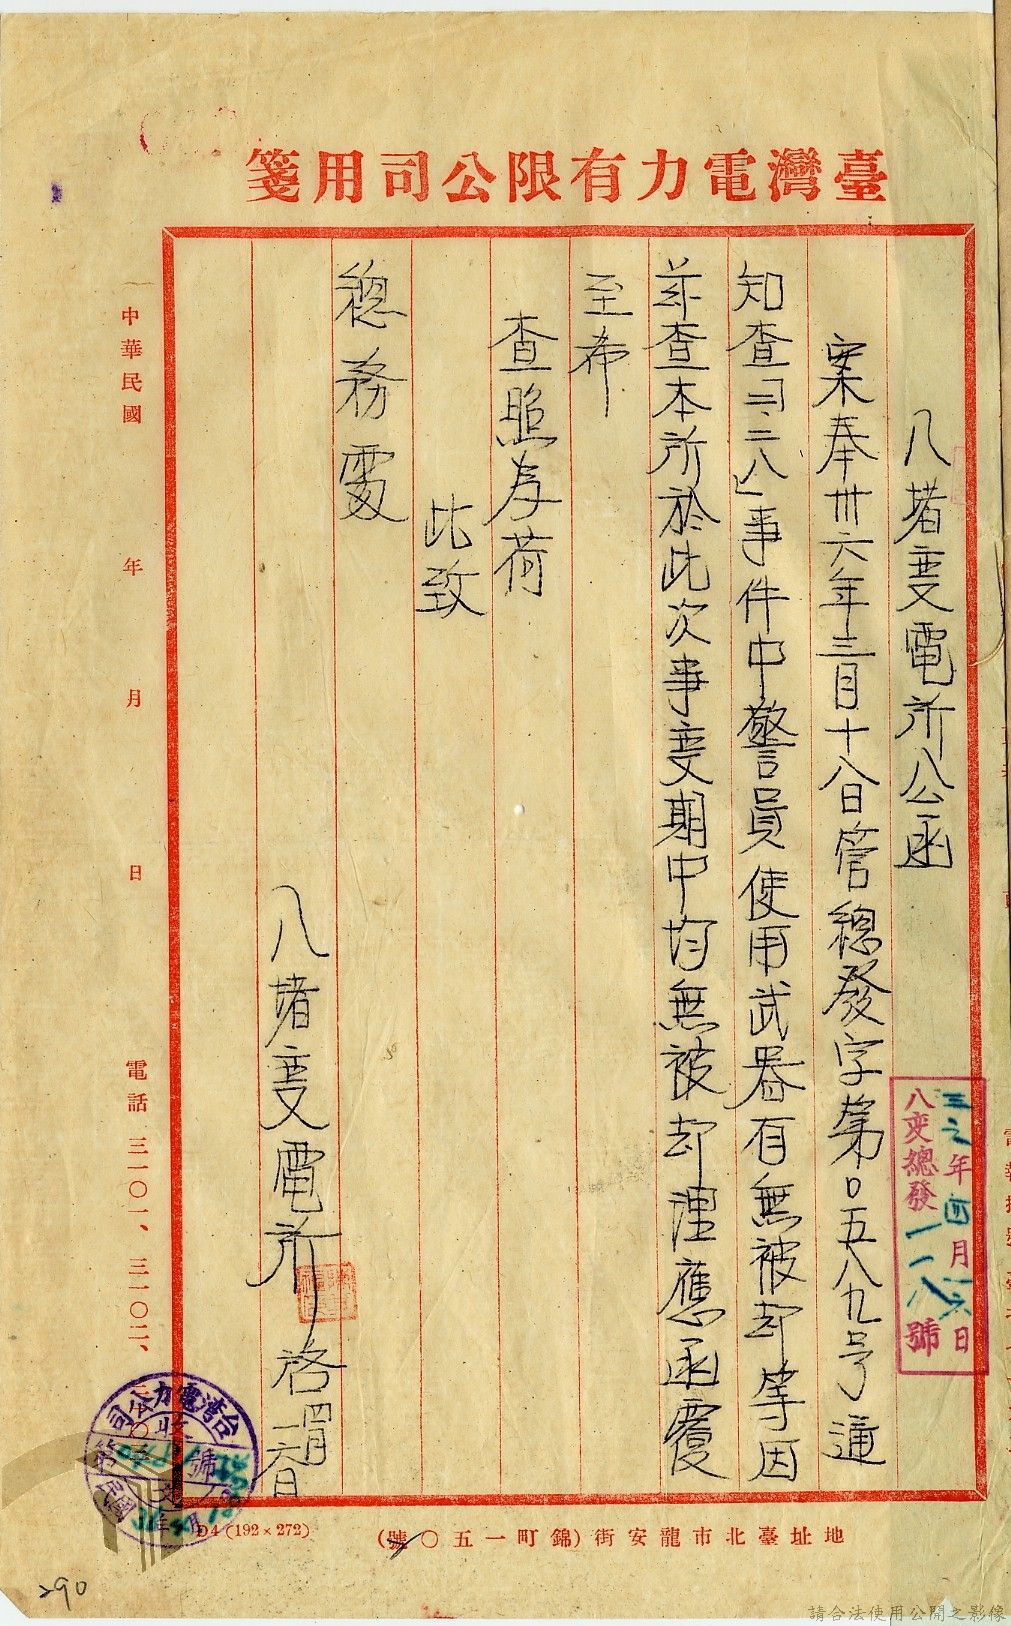 臺灣電力有限公司用箋
八堵變電所公函
案奉卅六年三月十八日管總發字第0五八九号通
知查「二.二八」事件中警員使用武器有無被却等因
茲查本所於此次事變期中均無被却理應函覆
至希
查照为荷
此致
總務處
八堵變電所 啓 四月 六日
三六年四月 六日
八变總發 一一八 號
中華民國 年 月 日
電話 三一〇一、三一〇二、
地址臺北市龍安街(錦町一五〇號)
D4 (192×272)
台灣電力公司
290
請合法使用公開之影像